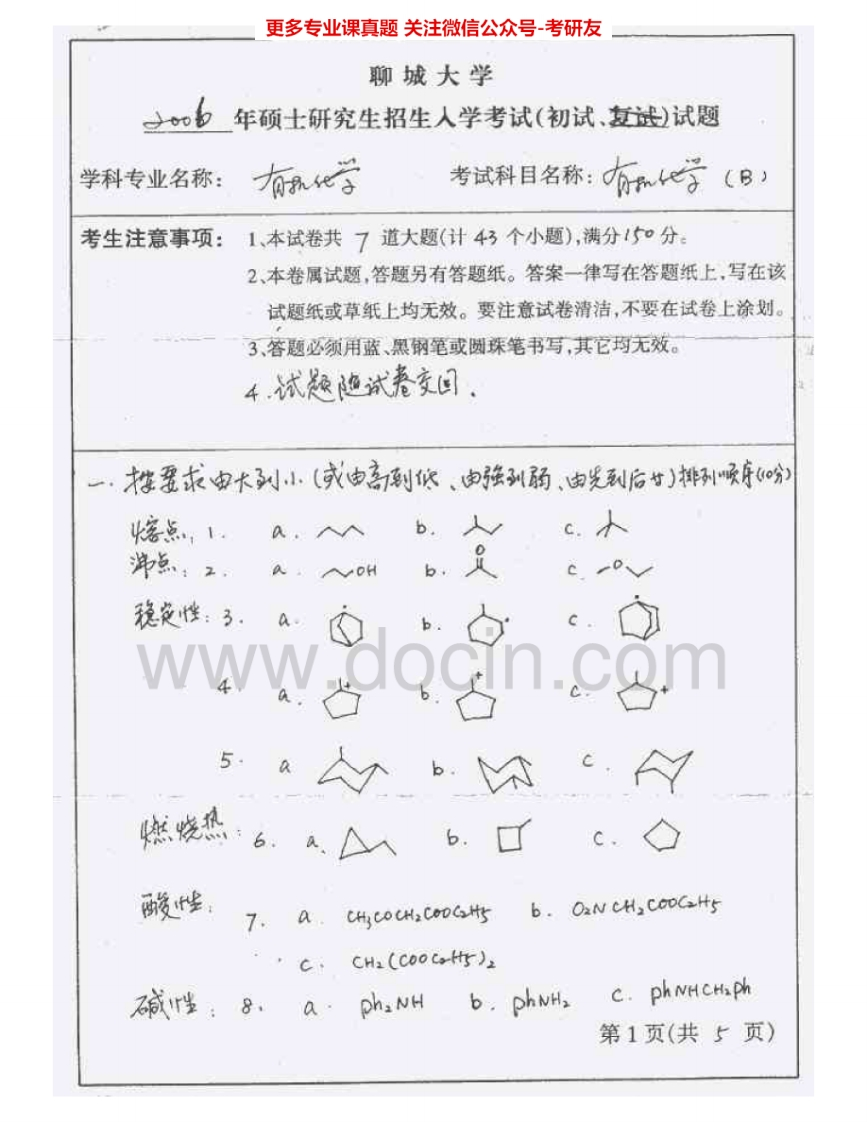 更多专业课真题 关注微信公众号-考研友
聊城大学
2006 年硕士研究生招生入学考试(初试、复试)试题
学科专业名称: 有机化学 考试科目名称: 有机化学 (B)
考生注意事项: 1、本试卷共 7 道大题(计 43 个小题),满分150分。
2、本卷属试题,答题另有答题纸。答案一律写在答题纸上,写在该
试题纸或草纸上均无效。要注意试卷清洁,不要在试卷上涂划。
3、答题必须用蓝、黑钢笔或圆珠笔书写,其它均无效。
4.试题随试卷交回.
一.按要求由大到小(或由高到低、由强到弱、由先到后等)排列顺序(10分)
熔点: 1. a. b. c.
沸点: 2. a. OH b. O c. O
稳定性: 3. a. b. c.
www.docin.com
4 a. + b. + c. +
5. a b. c.
燃烧热: 6. a. b. c.
酸性: 7. a. CH3COCH2COOC2H5 b. O2NCH2COOC2H5
c. CH2(COOC2H5)2
碱性: 8. a. ph2NH b. phNH2 c. phNHCH2ph
第1页(共 5 页)